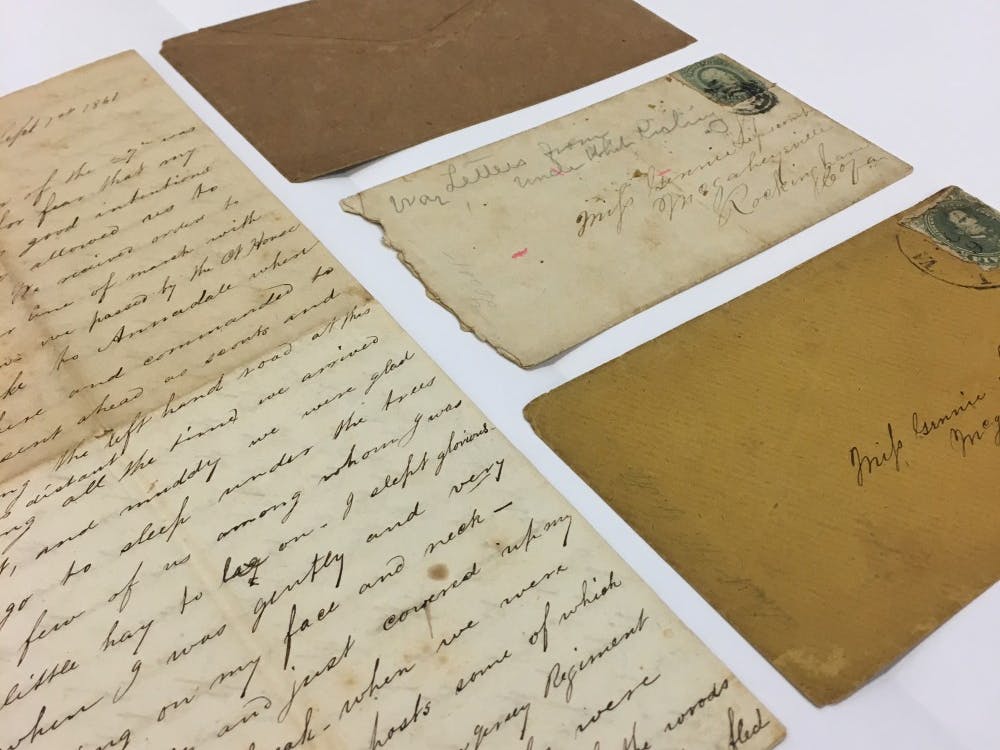 Sept 1st 1861
of the 29th was
for fear that my
good intentions
allowed us to
We received orders to
line of march with
we passed by the Ct House
to Annadale where
and commanded to
sent ahead as scouts and
the left hand road at this
distant
all the time we arrived
and muddy we were glad
go to sleep under the trees
few of us among whom I was
little hay to lay on - I slept glorious-
when I was gently and very
on my face and neck -
and just covered up my
when we were
posts some of which
Jersey Regiment
were
the woods
fled
War Letters from
Under
Miss Gennie
McGaheysville
Rockingham
Co Va
VA
Miss Gennie
McG